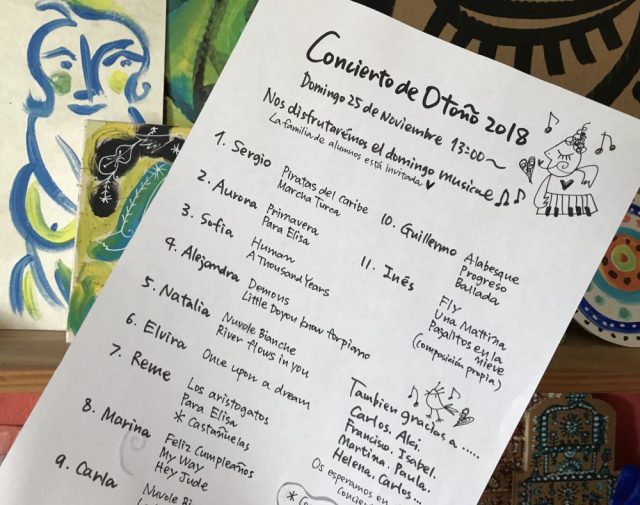 Concierto de Otoño 2018
Domingo 25 de Noviembre 13:00~
Nos disfrutarémos el domingo musical
La familia de alumnos está invitada
1. Sergio
Piratas del Caribe
Marcha Turca
2. Aurora
Primavera
Para Elisa
3. Sofia
Human
A Thousand Years
4. Alejandra
Demons
Little Do you know for piano
5. Natalia
Nuvole Bianche
River flows in you
6. Elvira
Once upon a dream
7. Reme
Los aristogatos
Para Elisa
* Castañuelas
8. Marina
Feliz Cumpleaños
My Way
Hey Jude
9. Carla
Nuvole Bi
10. Guillermo
Alabesque
Progreso
Ballada
11. Inés
Fly
Una Mattina
Pajalitos en la
Nieve
(composición propia)
Tambien gracias a .....
Carlos. Alai.
Francisco. Isabel.
Martina. Paula.
Helena. Carlos...
Os esperamos en
concier